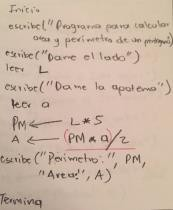 Inicio
escribe("Programa para calcular
area y perimetro de un pentagono")
escribe("Dame el lado")
leer L
escribe("Dame la apotema")
leer a
PM ← L * 5
A ← (PM * a)/2
escribe("Perimetro:", PM,
"Area:", A)
Termina